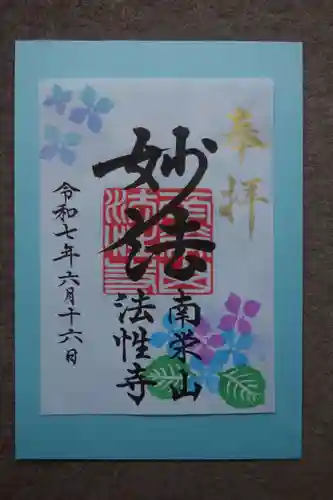 奉拝
妙法
南栄山
法性寺
令和七年六月十六日